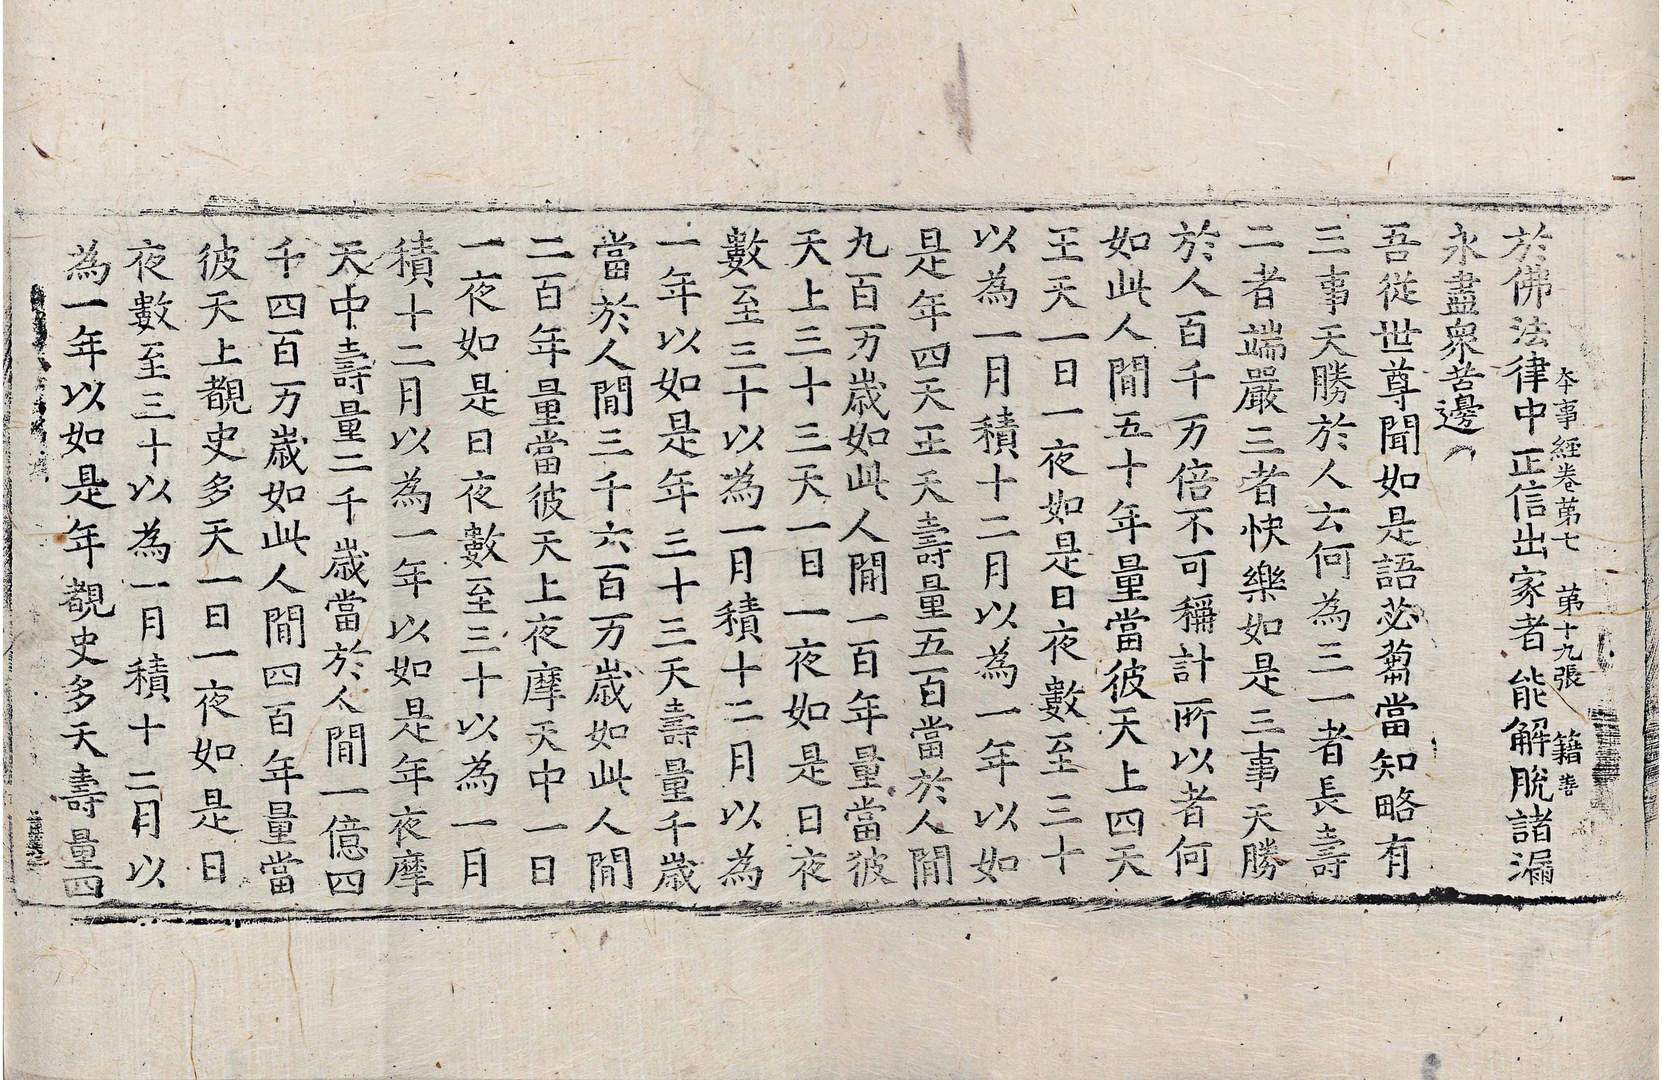 本事經卷第七　第十九張　籍善
於佛法律中正信出家者能解脫諸漏
永盡衆苦邊
吾從世尊聞如是語苾蒭當知略有
三事天勝於人云何為三一者長壽
二者端嚴三者快樂如是三事天勝
於人百千万倍不可稱計所以者何
如此人間五十年量當彼天上四天
王天一日一夜如是日夜數至三十
以為一月積十二月以為一年以如
是年四天王天壽量五百當於人間
九百万歲如此人間一百年量當彼
天上三十三天一日一夜如是日夜
數至三十以為一月積十二月以為
一年以如是年三十三天壽量千歲
當於人間三千六百万歲如此人間
二百年量當彼天上夜摩天中一日
一夜如是日夜數至三十以為一月
積十二月以為一年以如是年夜摩
天中壽量二千歲當於人間一億四
千四百万歲如此人間四百年量當
彼天上覩史多天一日一夜如是日
夜數至三十以為一月積十二月以
為一年以如是年覩史多天壽量四